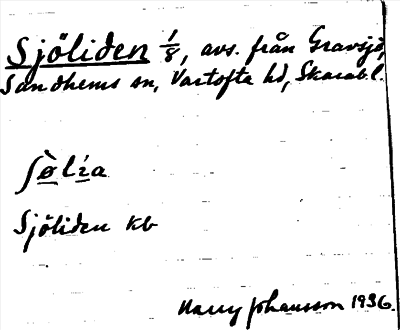 Sjöliden 1/8, avs. från Gravsjö,
Sandhems sn, Vartofta hd, Skarab.l.
ʃø̀lía
Sjöliden kb
Harry Johansson 1936.